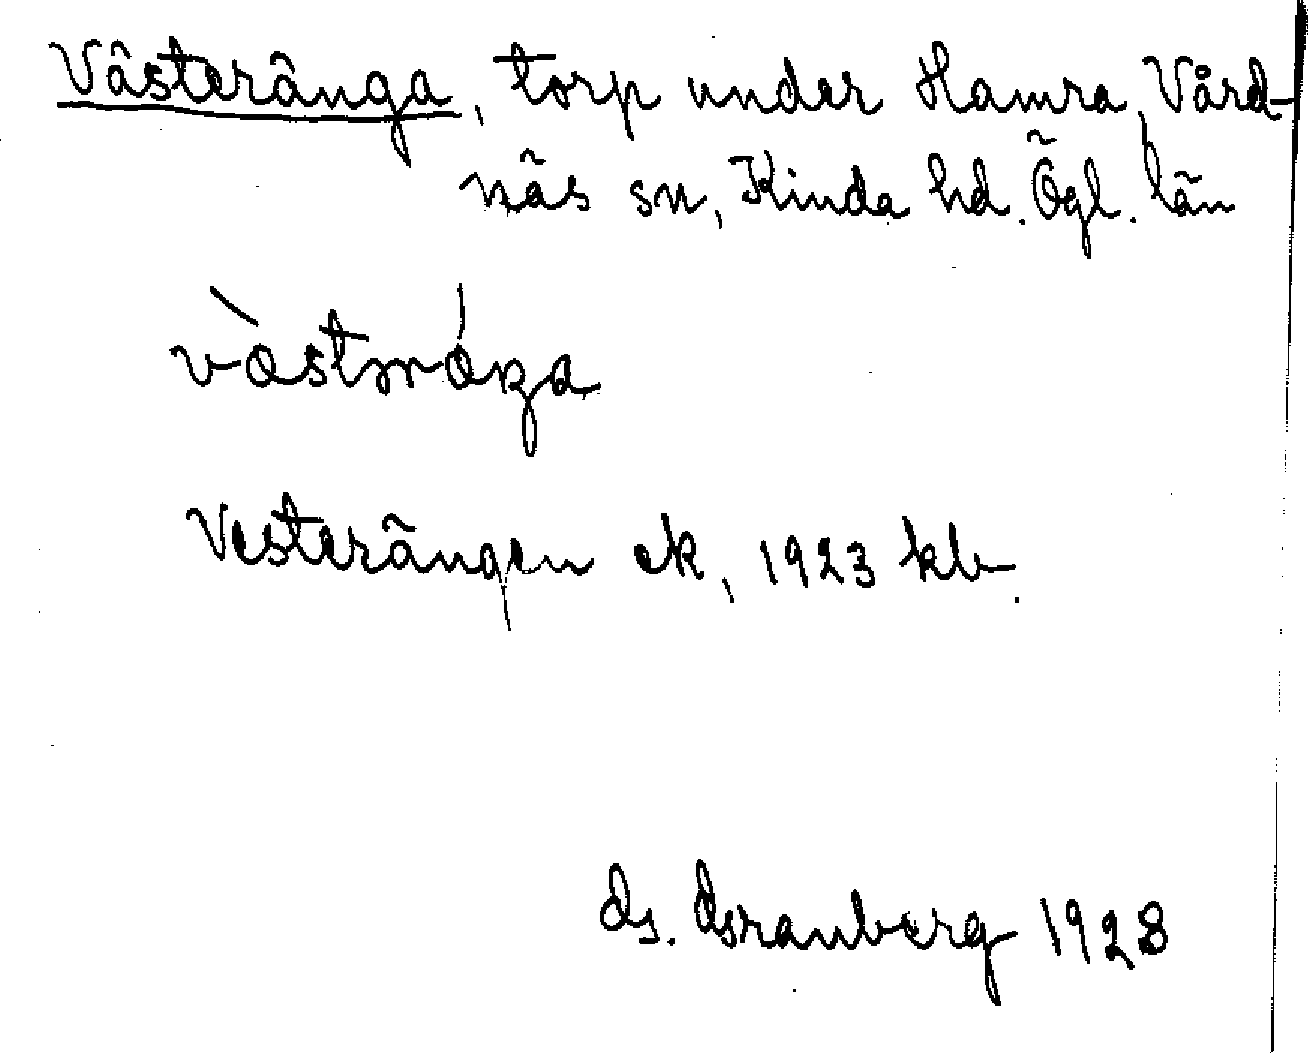 Västeränga, torp under Hamra, Vård-
näs sn, Kinda hd. Ögl. län
Vesterängen ek, 1923 kb.
G. Granberg 1928